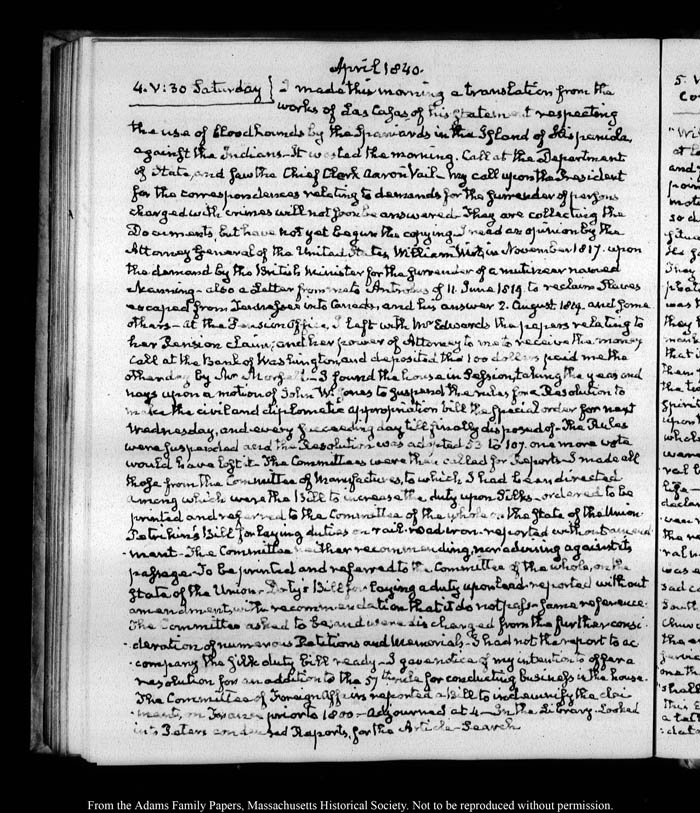 April 1840.
4. V:30 Saturday } I made this morning a translation from the
works of Las Casas of his statement respecting
the use of Bloodhounds by the Spaniards in the Island of Hispaniola
against the Indians. It wasted the morning. Call at the Department
of State, and saw the Chief Clerk Aaron Vail. My call upon the President
for the correspondences relating to demands for the surrender of persons
charged with crimes will not soon be answered. They are collecting the
Documents, but have not yet begun the copying. I read an opinion by the
Attorney General of the United States, William Wirt in November 1817. upon
the demand by the British Minister for the surrender of a mutineer named
Manning - also a Letter from Antrobus of 11. June 1819 to reclaim Slaves
escaped from Tennessee into Canada, and his answer 2. August 1819 and some
others - at the Pension Office, I left with Mr Edwards the papers relating to
her Pension claim, and her power of Attorney to me to receive the money
Call at the Bank of Washington, and deposited the 100 dollars paid me the
other day by Mr - I found the house in Session, taking the yeas and
nays upon a motion of John W. Jones to suspend the rules for a Resolution to
make the civil and diplomatic appropriation bill the special order for next
Wednesday, and every succeeding day till finally disposed of - The Rules
were suspended and the Resolution was adopted 53 to 107. one more vote
would have lost it. The Committees were then called for Reports - I made all
those from the Committee of Manufactures, to which I had been directed
among which were the Bill to increase the duty upon Silks - ordered to be
printed and referred to the Committee of the whole on the State of the Union
Bill for laying duties on rail-road iron - reported without amend
ment - The Committee neither recommending, nor advising against its
passage - To be printed and referred to the Committee of the whole, on the
State of the Union - Doty's Bill for laying a duty upon lead - reported without
amendment, with recommendation that it do not pass - same reference.
The Committee asked to be, and were discharged from the further consi
deration of numerous Petitions and Memorials - I had not the report to ac
company the Silk duty bill ready - I gave notice of my intention to offer a
resolution for an addition to the 57th rule for conducting business in the house.
The Committee of Foreign Affairs reported a bill to indemnify the clai
mants on France prior to 1800 - Adjourned at 4 - In the Library. Looked
into Peters condensed Reports, for the Article - Search
5. V
From the Adams Family Papers, Massachusetts Historical Society. Not to be reproduced without permission.